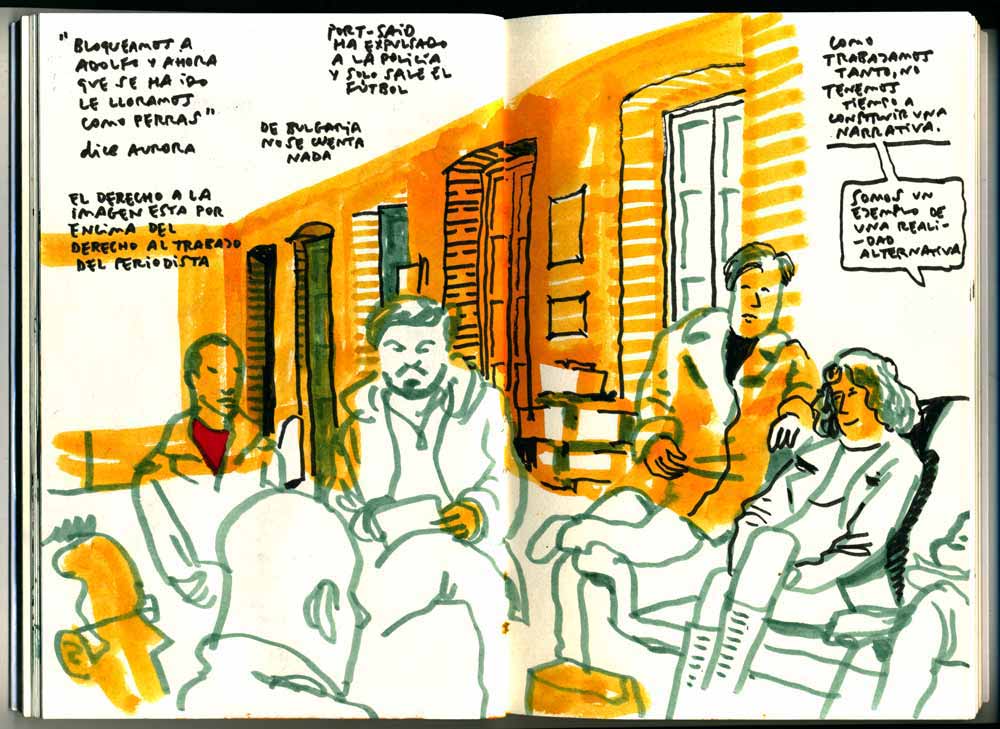 "BLOQUEAMOS A
ADOLFO Y AHORA
QUE SE HA IDO
LE LLORAMOS
COMO PERRAS"
dice AURORA
PORT-SAID
HA EXPULSADO
A LA POLICIA
Y SOLO SALE EL
FÚTBOL
DE BULGARIA
NO SE CUENTA
NADA
EL DERECHO A LA
IMAGEN ESTA POR
ENCIMA DEL
DERECHO AL TRABAJO
DEL PERIODISTA
COMO
TRABAJAMOS
TANTO, NO
TENEMOS
TIEMPO A
CONSTRUIR UNA
NARRATIVA.
SOMOS UN
EJEMPLO DE
UNA REALI-
-DAD
ALTERNATIVA